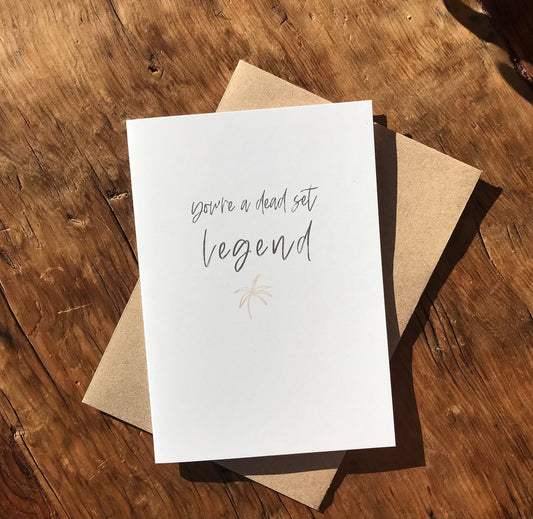 you're a dead set
legend